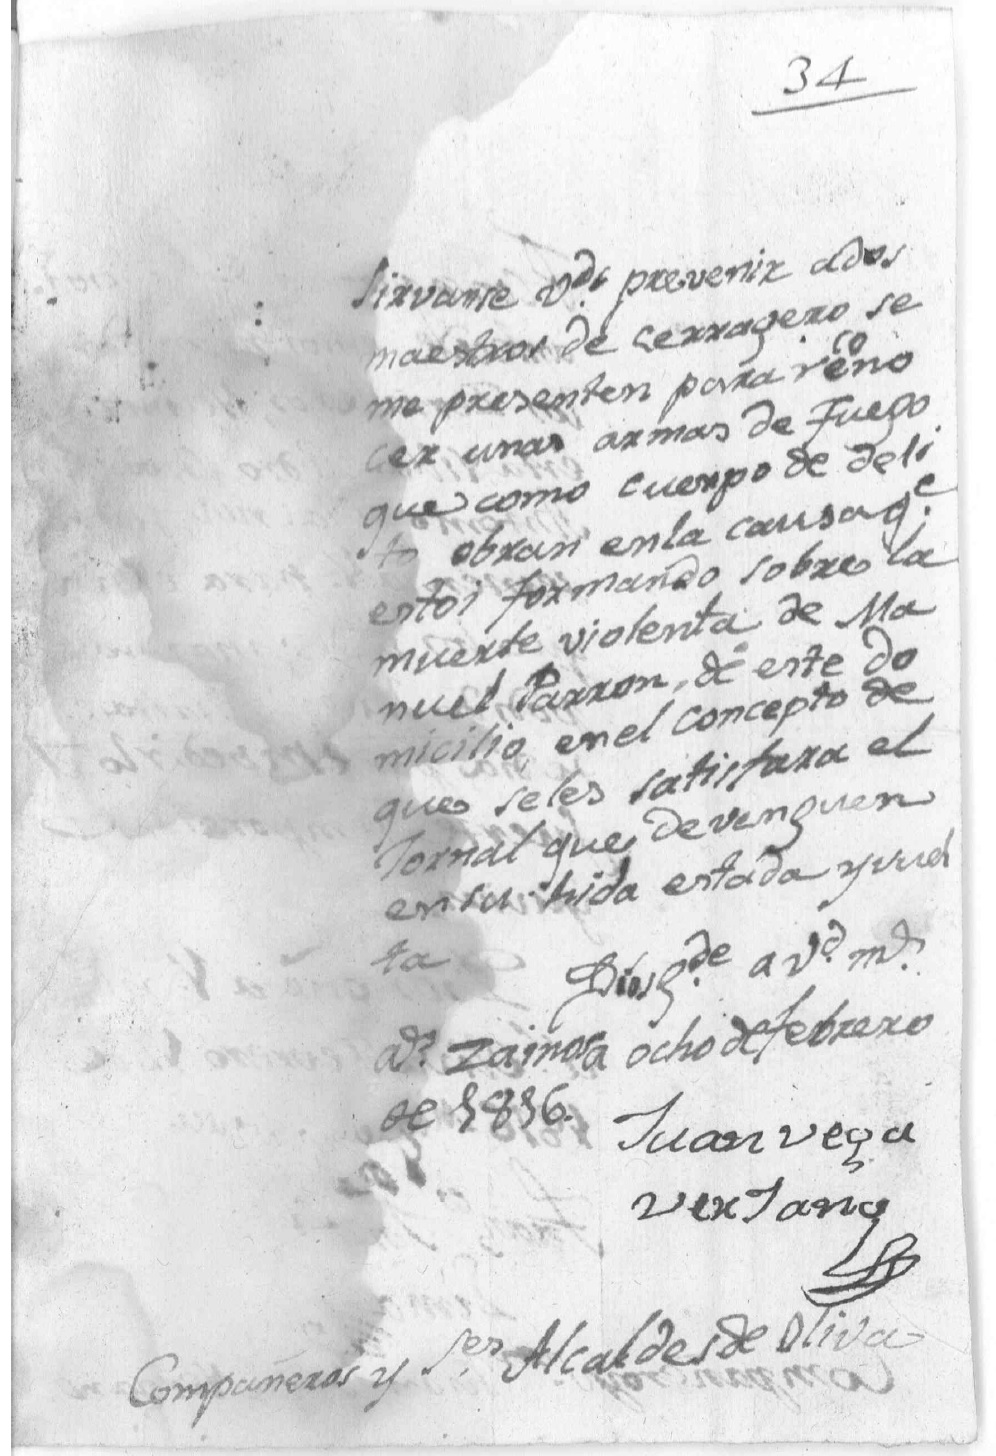 34
Sirvanse Vds. prevenir a dos
maestros de cerragero se
me presenten para reco no
cer unas armas de fuego
que como cuerpo de deli
to obran en la causa q.e
estoi formando sobre la
muerte violenta de Ma
nuel Parron, de este do
micilio, en el concepto de
que se les satisfara el
Jornal que devenguen
en su hida estada y vuel
ta
Dios g.de a Vd. m.s
a.s Zainosa ocho de febrero
de 1816.
Juan Vega
Compañeros y S.es Alcaldes de Oliva